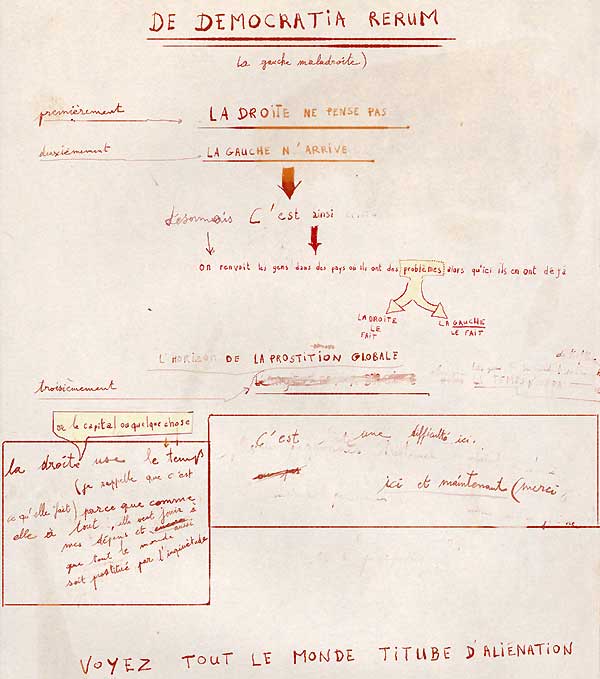 DE DEMOCRATIA RERUM
(la gauche maladroite)
premièrement
LA DROITE NE PENSE PAS
deuxièmement
LA GAUCHE N'ARRIVE
désormais C'est ainsi
on renvoit les gens dans des pays où ils ont des problèmes alors qu'ici ils en ont déjà
LA DROITE
LE
FAIT
LA GAUCHE
LE FAIT
L'HORIZON DE LA PROSTITION GLOBALE
troisièmement
ou le capital ou quelque chose
la droite use le temps
(je rappelle que c'est
ce qu'elle fait) parce que comme
elle a tout, elle veut jouir à
mes dépens et
que tout le monde aussi
soit prostitué par l'inquiétude
C'est une difficulté ici.
ici et maintenant (merci
VOYEZ TOUT LE MONDE TITUBE D'ALIÉNATION